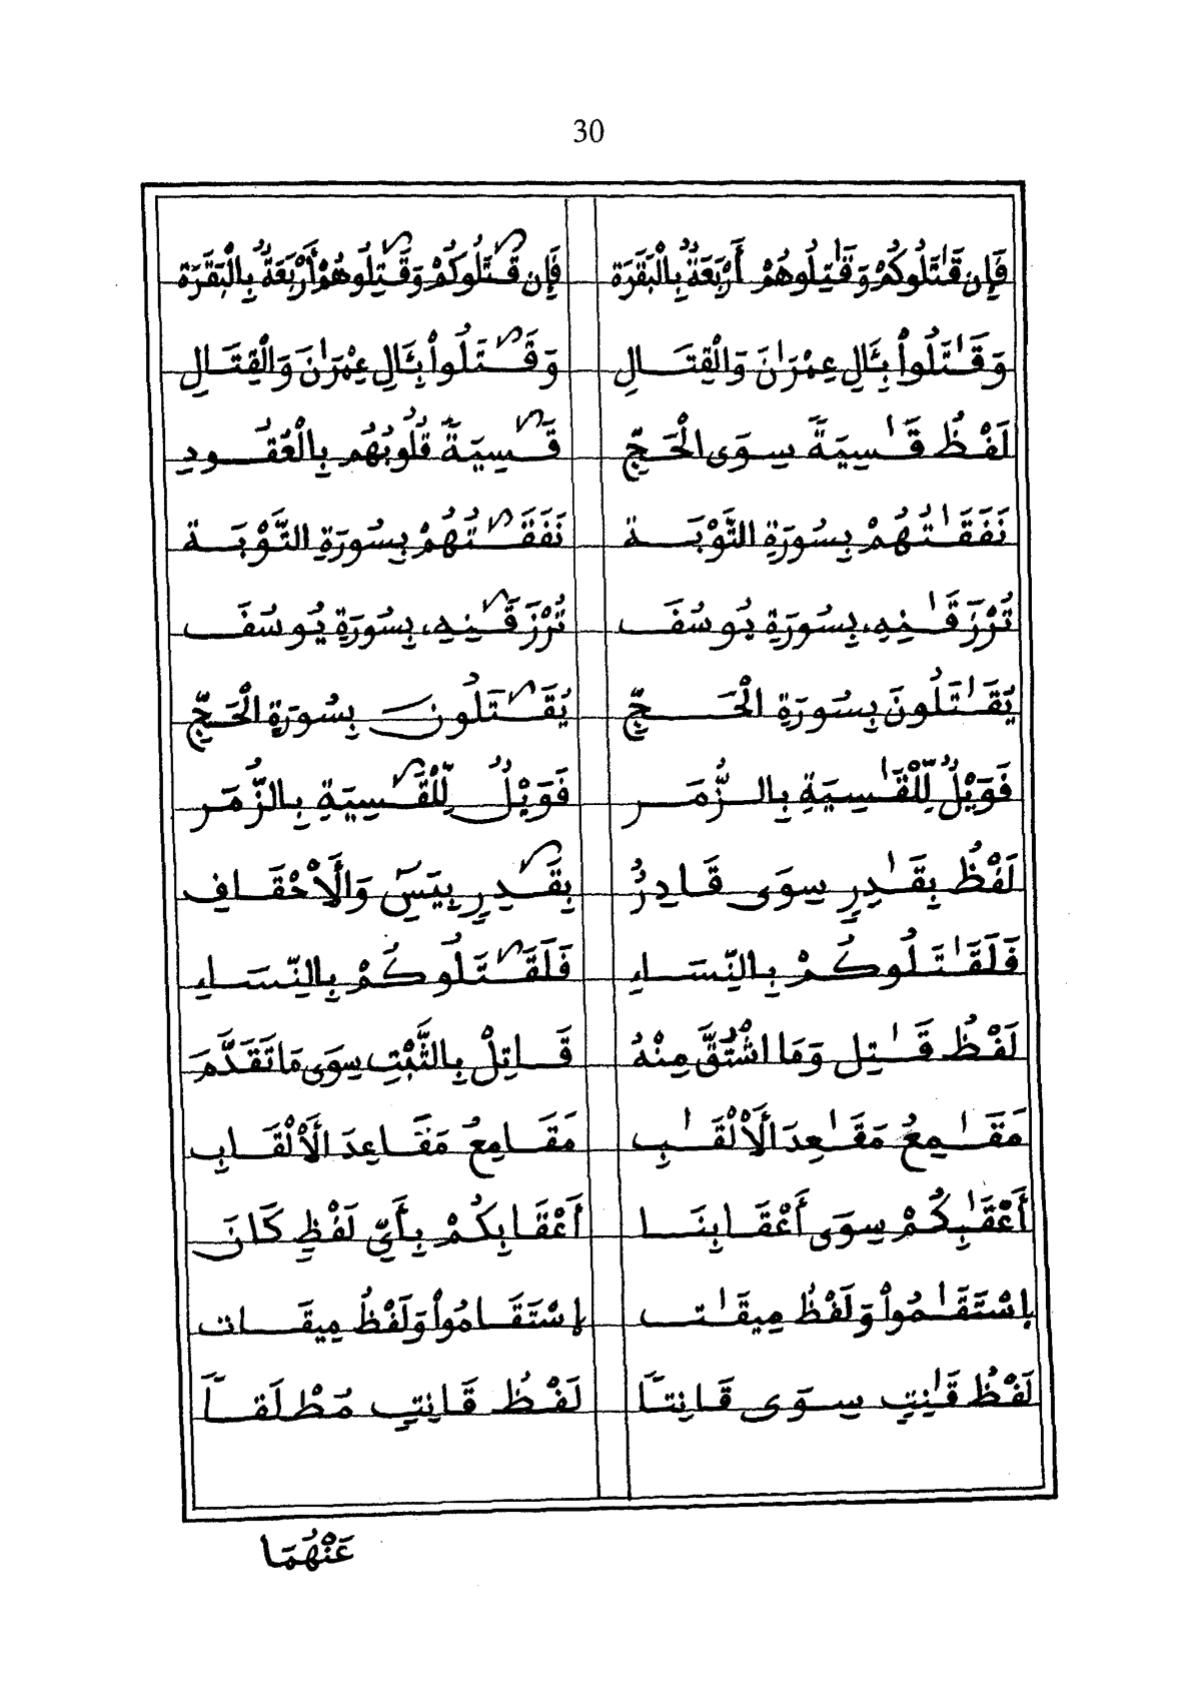 30
فَإِن قَٰتَلُوكُمْ وَقَٰتِلُوهُمْ أَرْبَعَةٌ بِالْبَقَرَة فَإِن قَٰتَلُوكُمْ وَقَٰتِلُوهُمْ أَرْبَعَةٌ بِالْبَقَرَة
وَقَٰتَلُواْ بِـَٔالِ عِمْرَٰنَ وَالْقِتَالِ وَقَٰتَلُواْ بِـَٔالِ عِمْرَٰنَ وَالْقِتَالِ
لَفْظُ قَٰسِيَةً سِوَى الْحَجِّ قَٰسِيَةً قُلُوبُهُم بِالْعُقُودِ
نَفَقَٰتُهُمْ بِسُورَةِ التَّوْبَة نَفَقَٰتُهُمْ بِسُورَةِ التَّوْبَة
تُرْزَقَٰنِهِۦ بِسُورَةِ يُوسُفَ تُرْزَقَٰنِهِۦ بِسُورَةِ يُوسُفَ
يُقَٰتَلُونَ بِسُورَةِ الْحَجِّ يُقَٰتَلُونَ بِسُورَةِ الْحَجِّ
فَوَيْلٌ لِّلْقَٰسِيَةِ بِالزُّمَر فَوَيْلٌ لِّلْقَٰسِيَةِ بِالزُّمَر
لَفْظُ بِقَٰدِرٍ سِوَى قَادِرٌ بِقَٰدِرٍ بِيَسٓ وَالَأحْقَافِ
فَلَقَٰتَلُوكُمْ بِالنِّسَاءِ فَلَقَٰتَلُوكُمْ بِالنِّسَاءِ
لَفْظُ قَٰتِل وَمَا اشْتُقَّ مِنْهُ قَاتِلْ بِالثَّبْتِ سِوَى مَا تَقَدَّمَ
مَقَٰمِعُ مَقَٰعِدَ الَأْلْقَٰبِ مَقَامِعُ مَقَاعِدَ الَأْلْقَابِ
أَعْقَٰبِكُمْ سِوَى أَعْقَابِنَا أَعْقَابِكُمْ بِأَيِّ لَفْظٍ كَانَ
إِسْتَقَٰمُواْ وَلَفْظُ مِيقَٰت إِسْتَقَامُواْ وَلَفْظُ مِيقَات
لَفْظُ قَٰنِتٍ سِوَى قَانِتاً لَفْظُ قَانِتٍ مُطْلَقاً
عَنْهُمَا